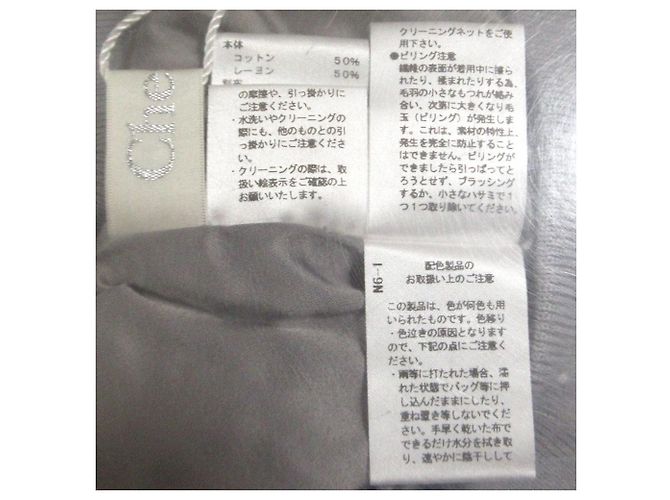 Che
本体
コットン 50%
レーヨン 50%
の摩擦や、引っ掛かりに
ご注意ください。
・水洗いやクリーニングの
際にも、他のものとの引
っ掛かりにご注意くださ
い。
・クリーニングの際は、取
扱い絵表示をご確認の上
お願いいたします。
クリーニングネットをご使
用下さい。
●ピリング注意
繊維の表面が着用中に擦ら
れたり、揉まれたりする為、
毛羽の小さなもつれが絡み
合い、次第に大きくなり毛
玉(ピリング)が発生しま
す。これは、素材の特性上、
発生を完全に防止すること
はできません。ピリングが
できましたら引っぱってと
ろうとせず、ブラッシング
するか、小さなハサミで1
つ1つ取り除いてください。
N6-1
配色製品の
お取扱い上のご注意
この製品は、色が何色も用
いられたものです。色移り
・色泣きの原因となります
ので、下記の点にご注意く
ださい。
・雨等に打たれた場合、濡
れた状態でバッグ等に押
し込んだままにしたり、
重ね置き等しないでくだ
さい。手早く乾いた布で
できるだけ水分を拭き取
り、速やかに陰干しして